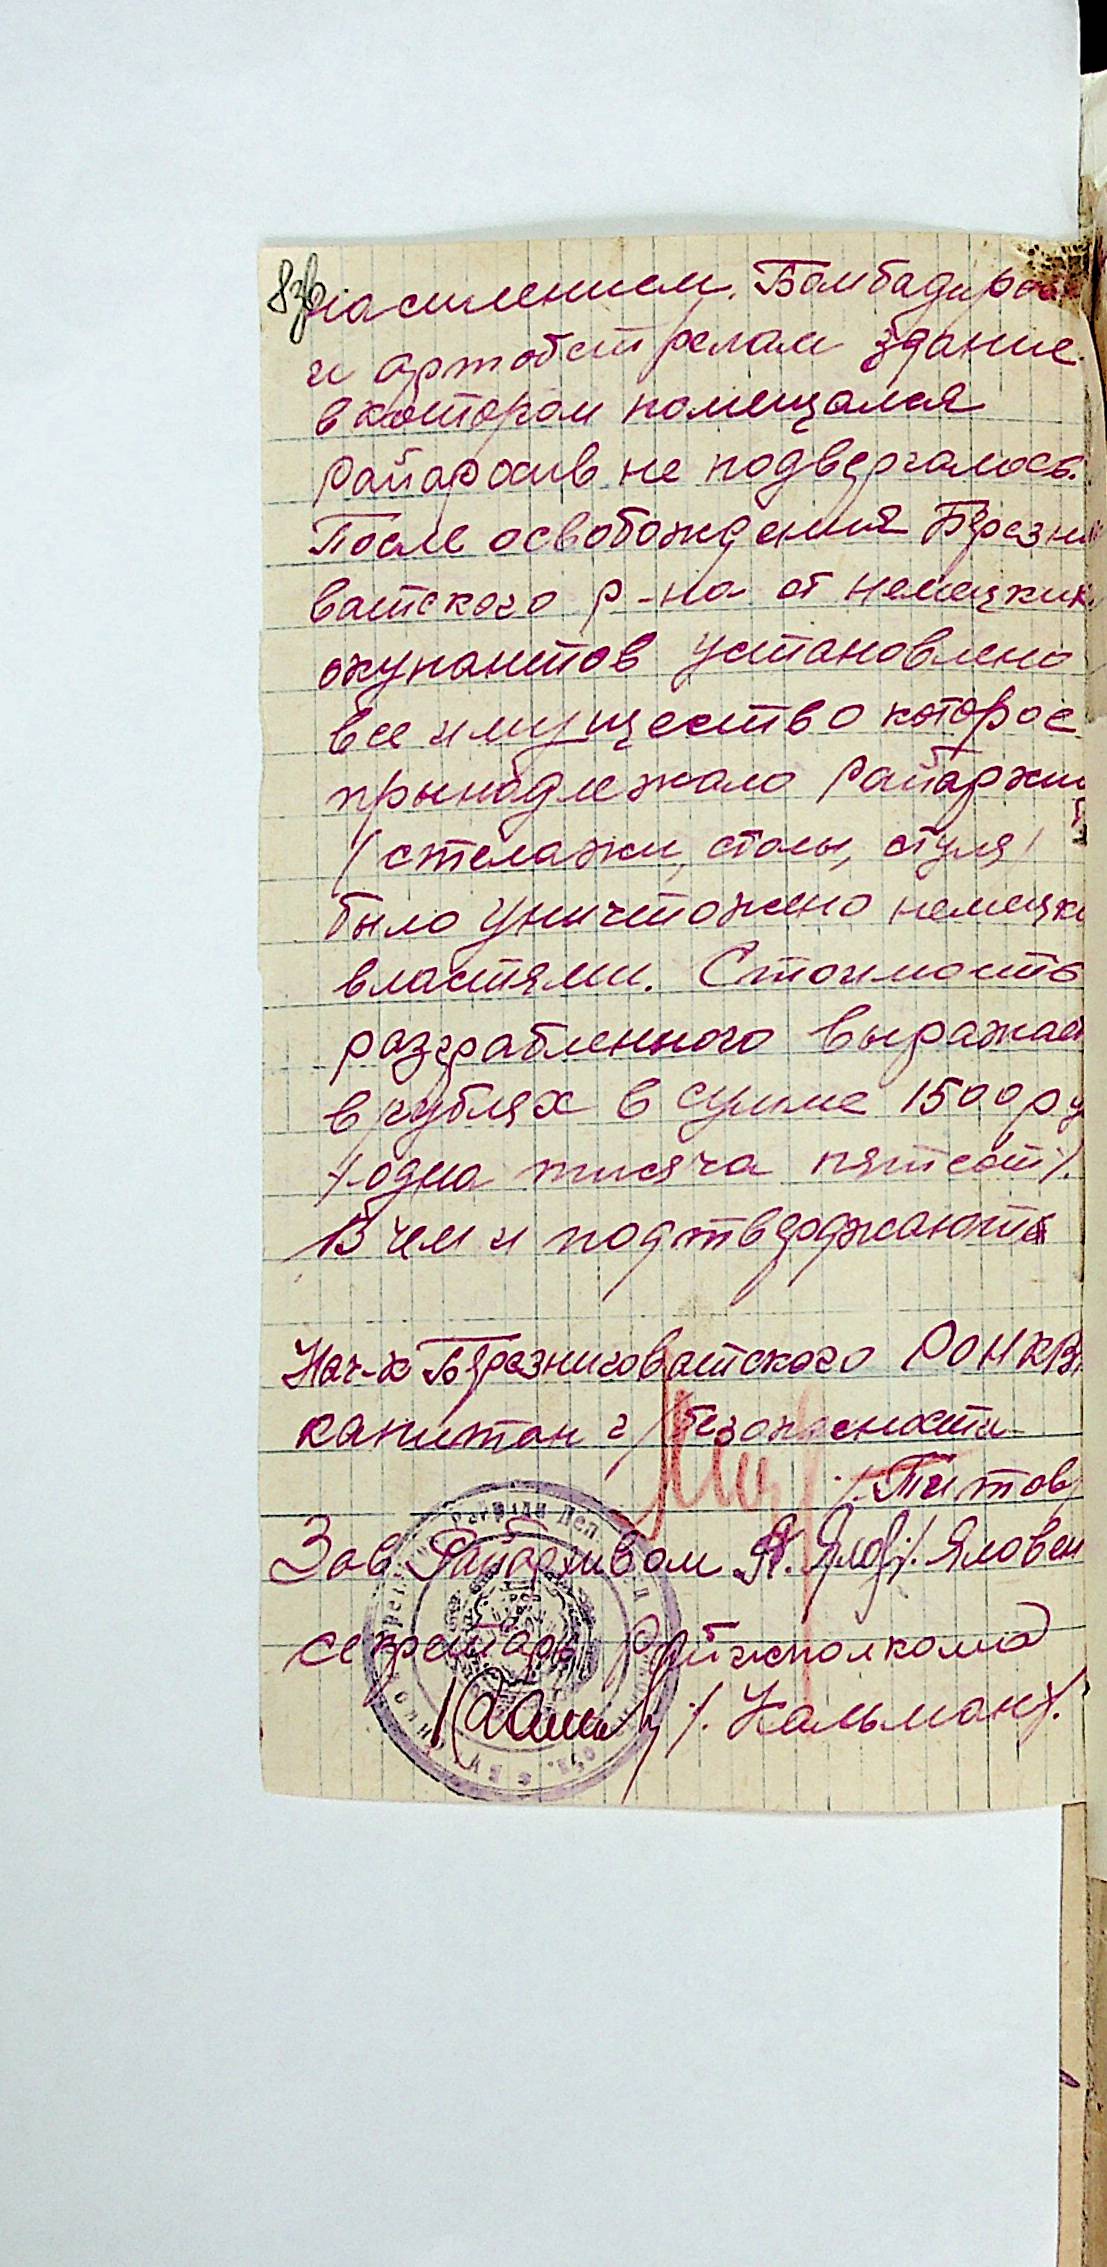 8зв
насилением. Бомбадиров
и артобстрелам здание
в котором помещался
Райархив не подвергалось.
После освобождения Бярезни
ватского р-на от немецких
окупантов установлено
все имущество которое
прынадлежало Райархив
/стелажи, столы, стуля/
было уничтожено немецк
властями. Стоимость
разграбленного выражает
в рублях в сумме 1500 ру
/-одна тисяча пятсот/.
В чем и подтверджаются
Нач-к Бярезниговатского РОНКВД
капитан г/безопасности
/. Титов/
Зав Райархивом Я. Ялов /. Яловен
секретарь Райисполкома
/. Кальман/.